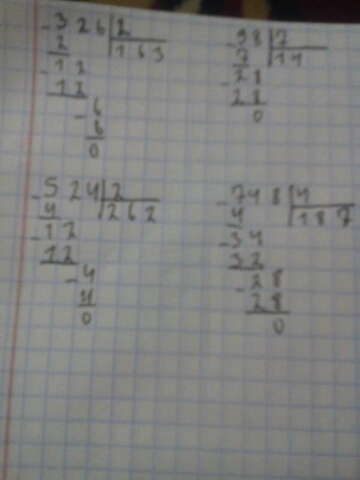 -326|2
2|163
-12
12
-6
6
0
-98|7
7|14
-28
28
0
-524|2
4|262
-12
12
-4
4
0
-748|4
4|187
-34
32
-28
28
0